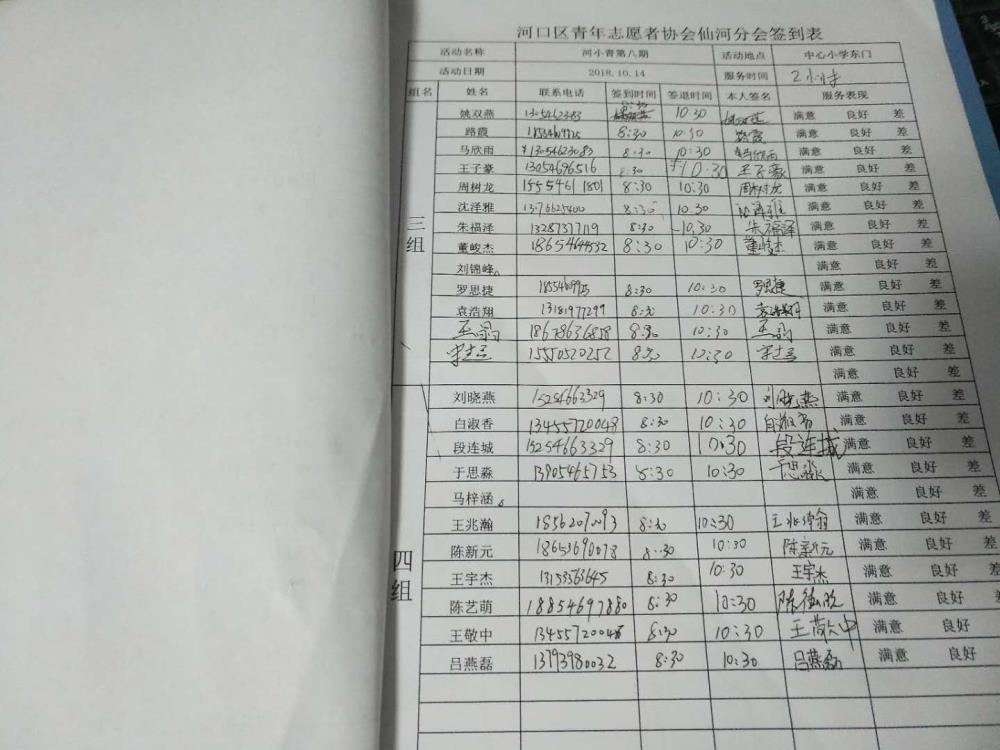 河口区青年志愿者协会仙河分会签到表
活动名称 河小青第八期 活动地点 中心小学东门
活动日期 2018.10.14 服务时间 2小时
组名 姓名 联系电话 签到时间 签退时间 本人签名 服务表现
姚双燕 10:30 满意 良好 差
路霞 8:30 10:30 路霞 满意 良好 差
马欣雨 13054623083 8:30 10:30 马欣雨 满意 良好 差
王子豪 13054696516 8:30 10:30 王子豪 满意 良好 差
周树龙 15554611801 8:30 10:30 周树龙 满意 良好 差
沈泽雅 8:30 10:30 沈泽雅 满意 良好 差
三组 朱福泽 13287377119 8:30 10:30 朱福泽 满意 良好 差
董峻杰 18654644532 8:30 10:30 董峻杰 满意 良好 差
刘锦峰 满意 良好 差
罗思捷 8:30 10:30 罗思捷 满意 良好 差
袁浩翔 13181977299 8:30 10:30 袁浩翔 满意 良好 差
18678636858 8:30 10:30 满意 良好 差
15550520252 8:30 10:30 满意 良好 差
满意 良好 差
刘晓燕 15254663329 8:30 10:30 刘晓燕 满意 良好 差
白淑香 13455720048 8:30 10:30 白淑香 满意 良好 差
段连城 15254663329 8:30 10:30 段连城 满意 良好 差
于思淼 13905465753 8:30 10:30 于思淼 满意 良好 差
马梓涵 满意 良好 差
王兆瀚 18562072093 8:30 10:30 王兆瀚 满意 良好 差
陈新元 18653690078 8:30 10:30 陈新元 满意 良好 差
四组 王宇杰 13153563645 8:30 10:30 王宇杰 满意 良好 差
陈艺萌 18854697880 8:30 10:30 满意 良好 差
王敬中 13455720048 8:30 10:30 王敬中 满意 良好
吕燕磊 13793980032 8:30 10:30 吕燕磊 满意 良好